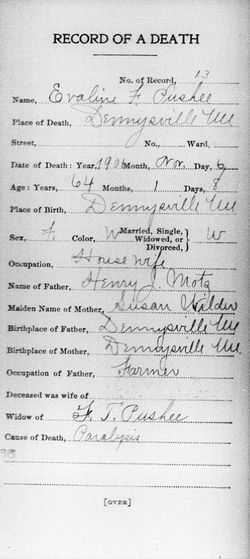 RECORD OF A DEATH
No. of Record, 13
Name, Evaline F. Pushee
Place of Death, Dennysville Me
Street, No., Ward,
Date of Death: Year, 1906 Month, Nov. Day, 6
Age: Years, 64 Months, 1 Days, 8
Place of Birth, Dennysville Me
Sex, F. Color, W Married, Single, Widowed, or Divorced, } W
Occupation, House wife
Name of Father, Henry J. Motz
Maiden Name of Mother, Susan Wilder
Birthplace of Father, Dennysville Me
Birthplace of Mother, Dennysville Me
Occupation of Father, Farmer
Deceased was wife of
Widow of F. T. Pushee
Cause of Death, Paralysis
[OVER]